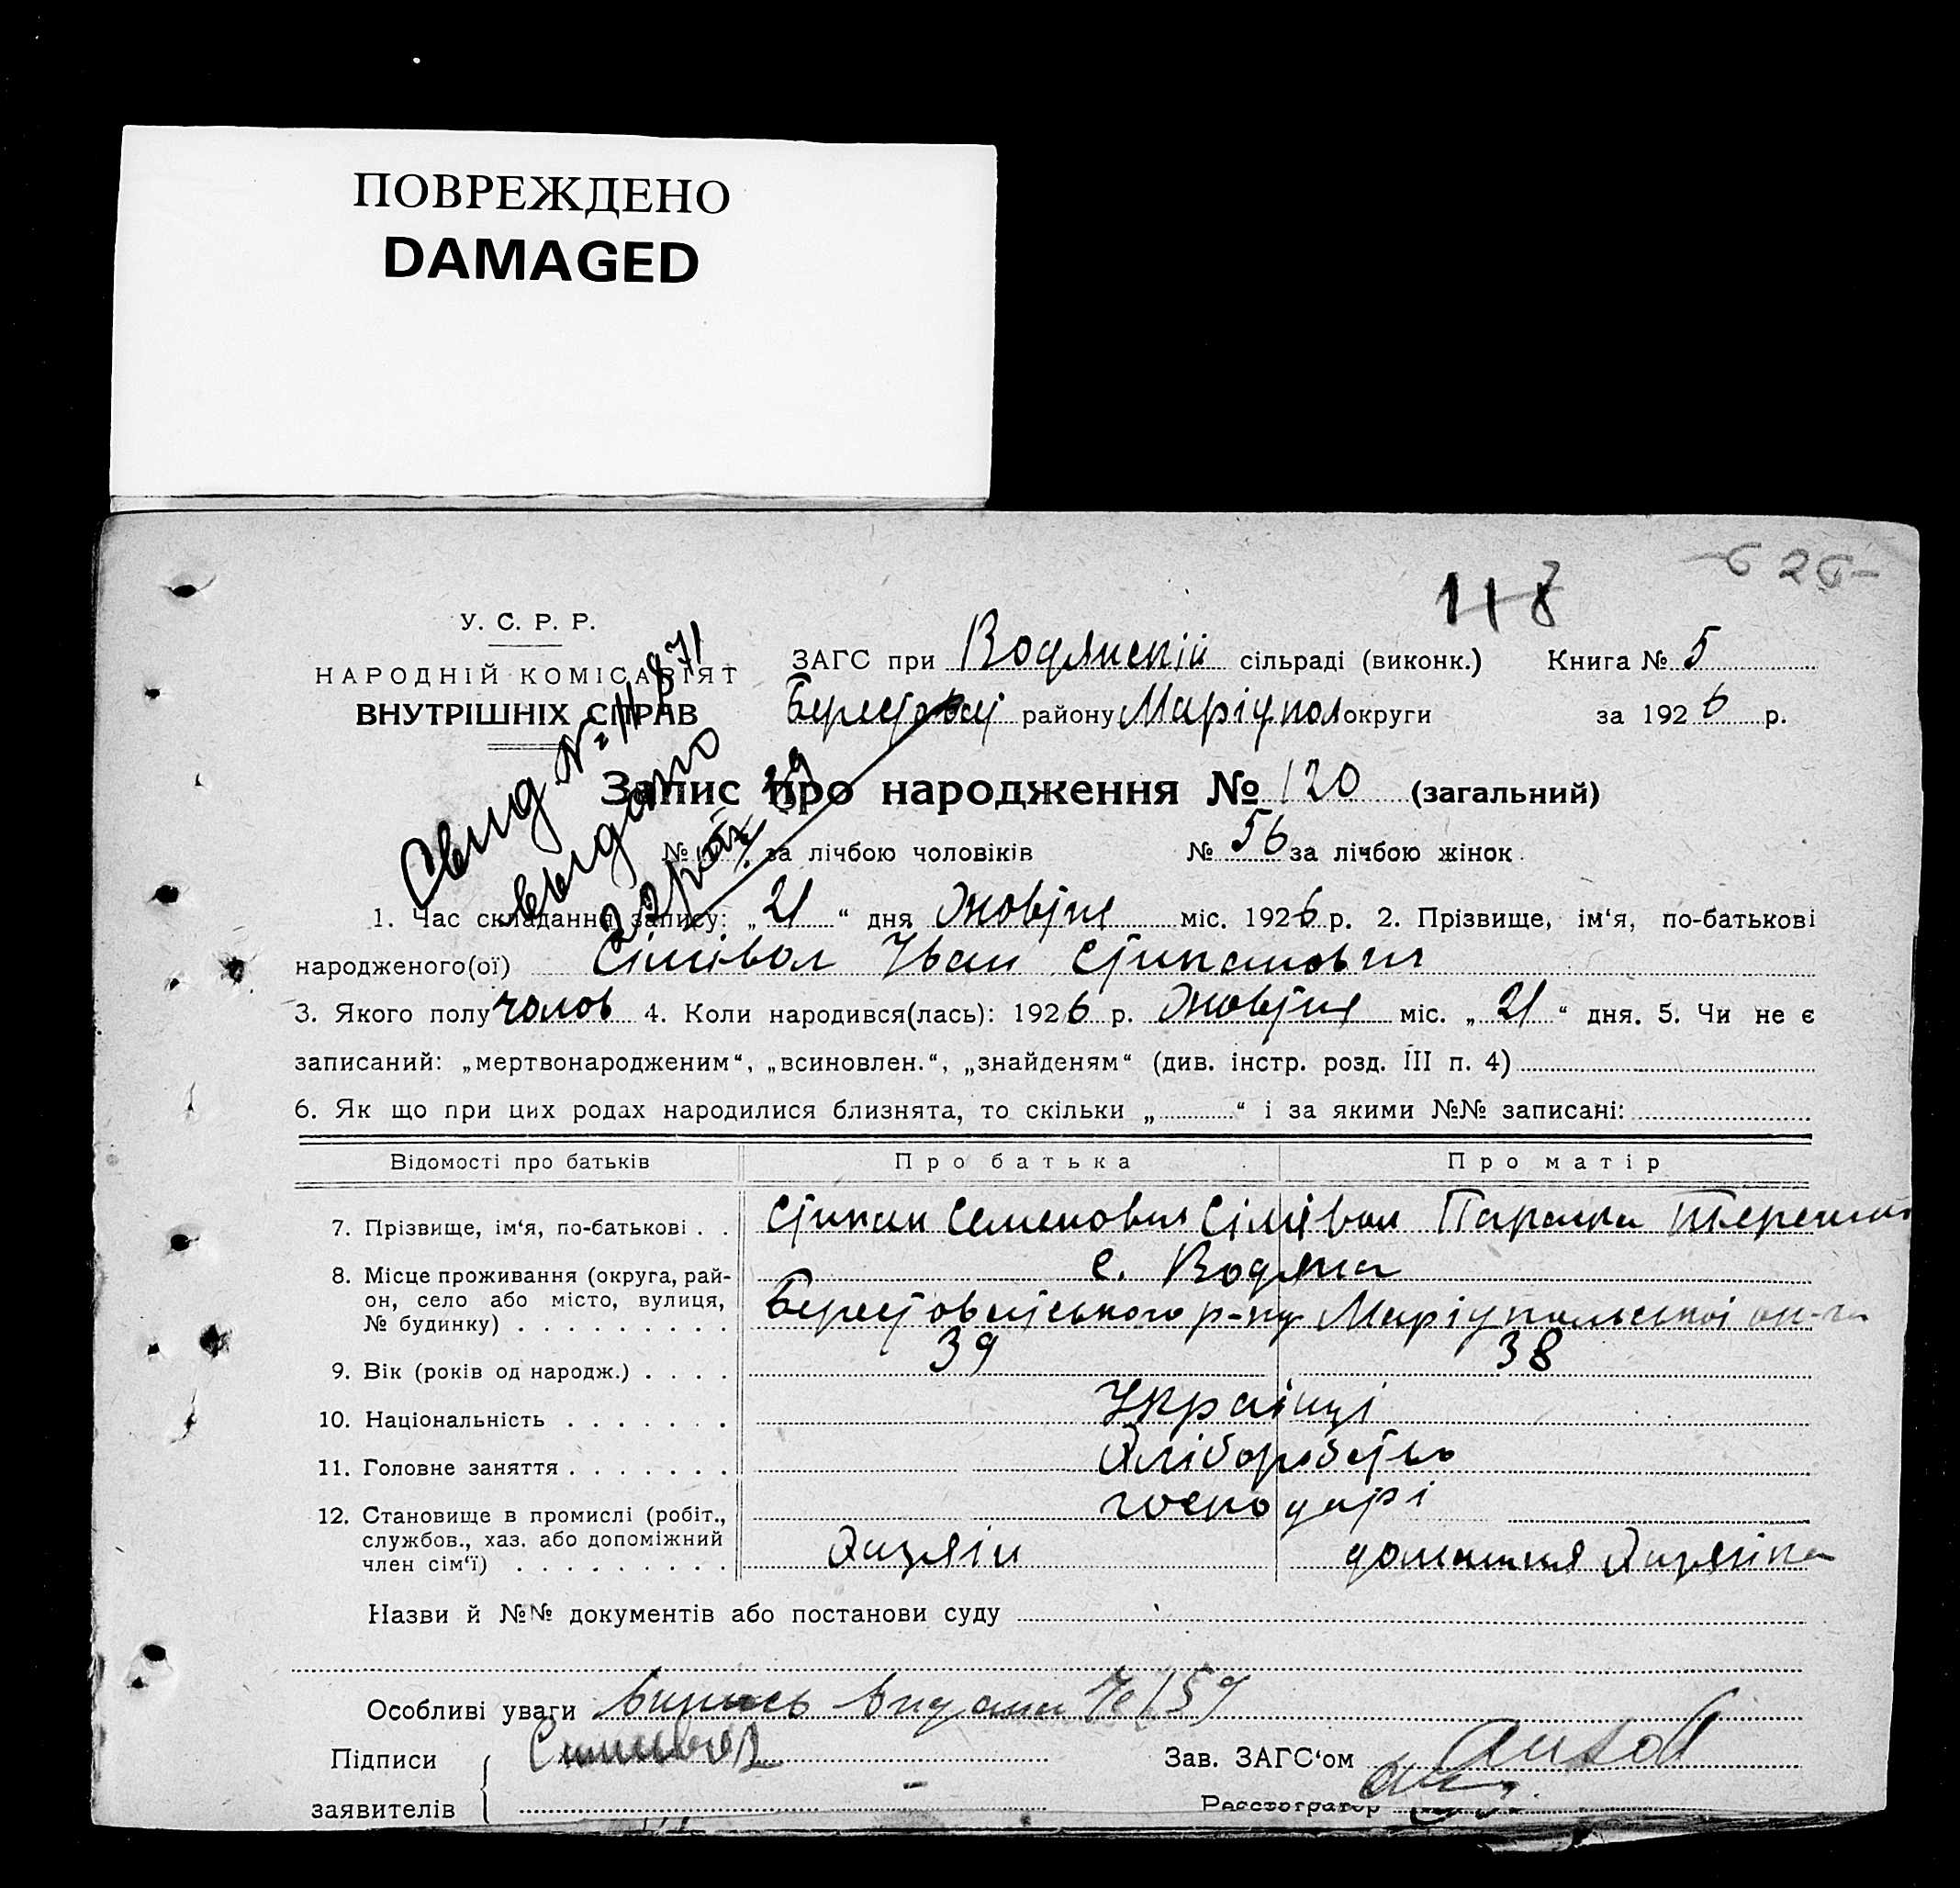 ПОВРЕЖДЕНО
DAMAGED
118
6 26
У. С. Р. Р.
НАРОДНІЙ КОМІСАРІЯТ
ВНУТРІШНІХ СПРАВ
Свид № 11871
выдано
ЗАГС при Водянській сільраді (виконк.) Книга № 5
району Маріупол округи за 1926 р.
Запис про народження № 120 (загальний)
№ за лічбою чоловіків № 56 за лічбою жінок.
1. Час складання запису: „21“ дня Жовтня міс. 1926 р. 2. Прізвище, ім‘я, по-батькові
народженого(ої) Сімівол Іван Стипанович
3. Якого полу чолов 4. Коли народився(лась): 1926 р. Жовтня міс. „21“ дня. 5. Чи не є
записаний: „мертвонародженим“, „всиновлен.“, „знайденям“ (див. інстр. розд. III п. 4)
6. Як що при цих родах народилися близнята, то скільки „ “ і за якими №№ записані:
Відомості про батьків Про батька Про матір
7. Прізвище, ім‘я, по-батькові . . Стипан Семенович Сімівол Параска
8. Місце проживання (округа, рай- с. Водяна
он, село або місто, вулиця, р-ну Маріупольської
№ будинку) . . . . . . . . .
9. Вік (років од народж.) . . . . 39 38
10. Національність . . . . . . . Українці
11. Головне заняття . . . . . . . Хліборобств
12. Становище в промислі (робіт., господарі
службов., хаз. або допоміжний
член сім‘ї) . . . . . . . . . Хазяїн домашня Хазяіка
Назви й №№ документів або постанови суду
Особливі уваги Випись видана № 159
Підписи Зав. ЗАГС‘ом
заявителів Реєстратор